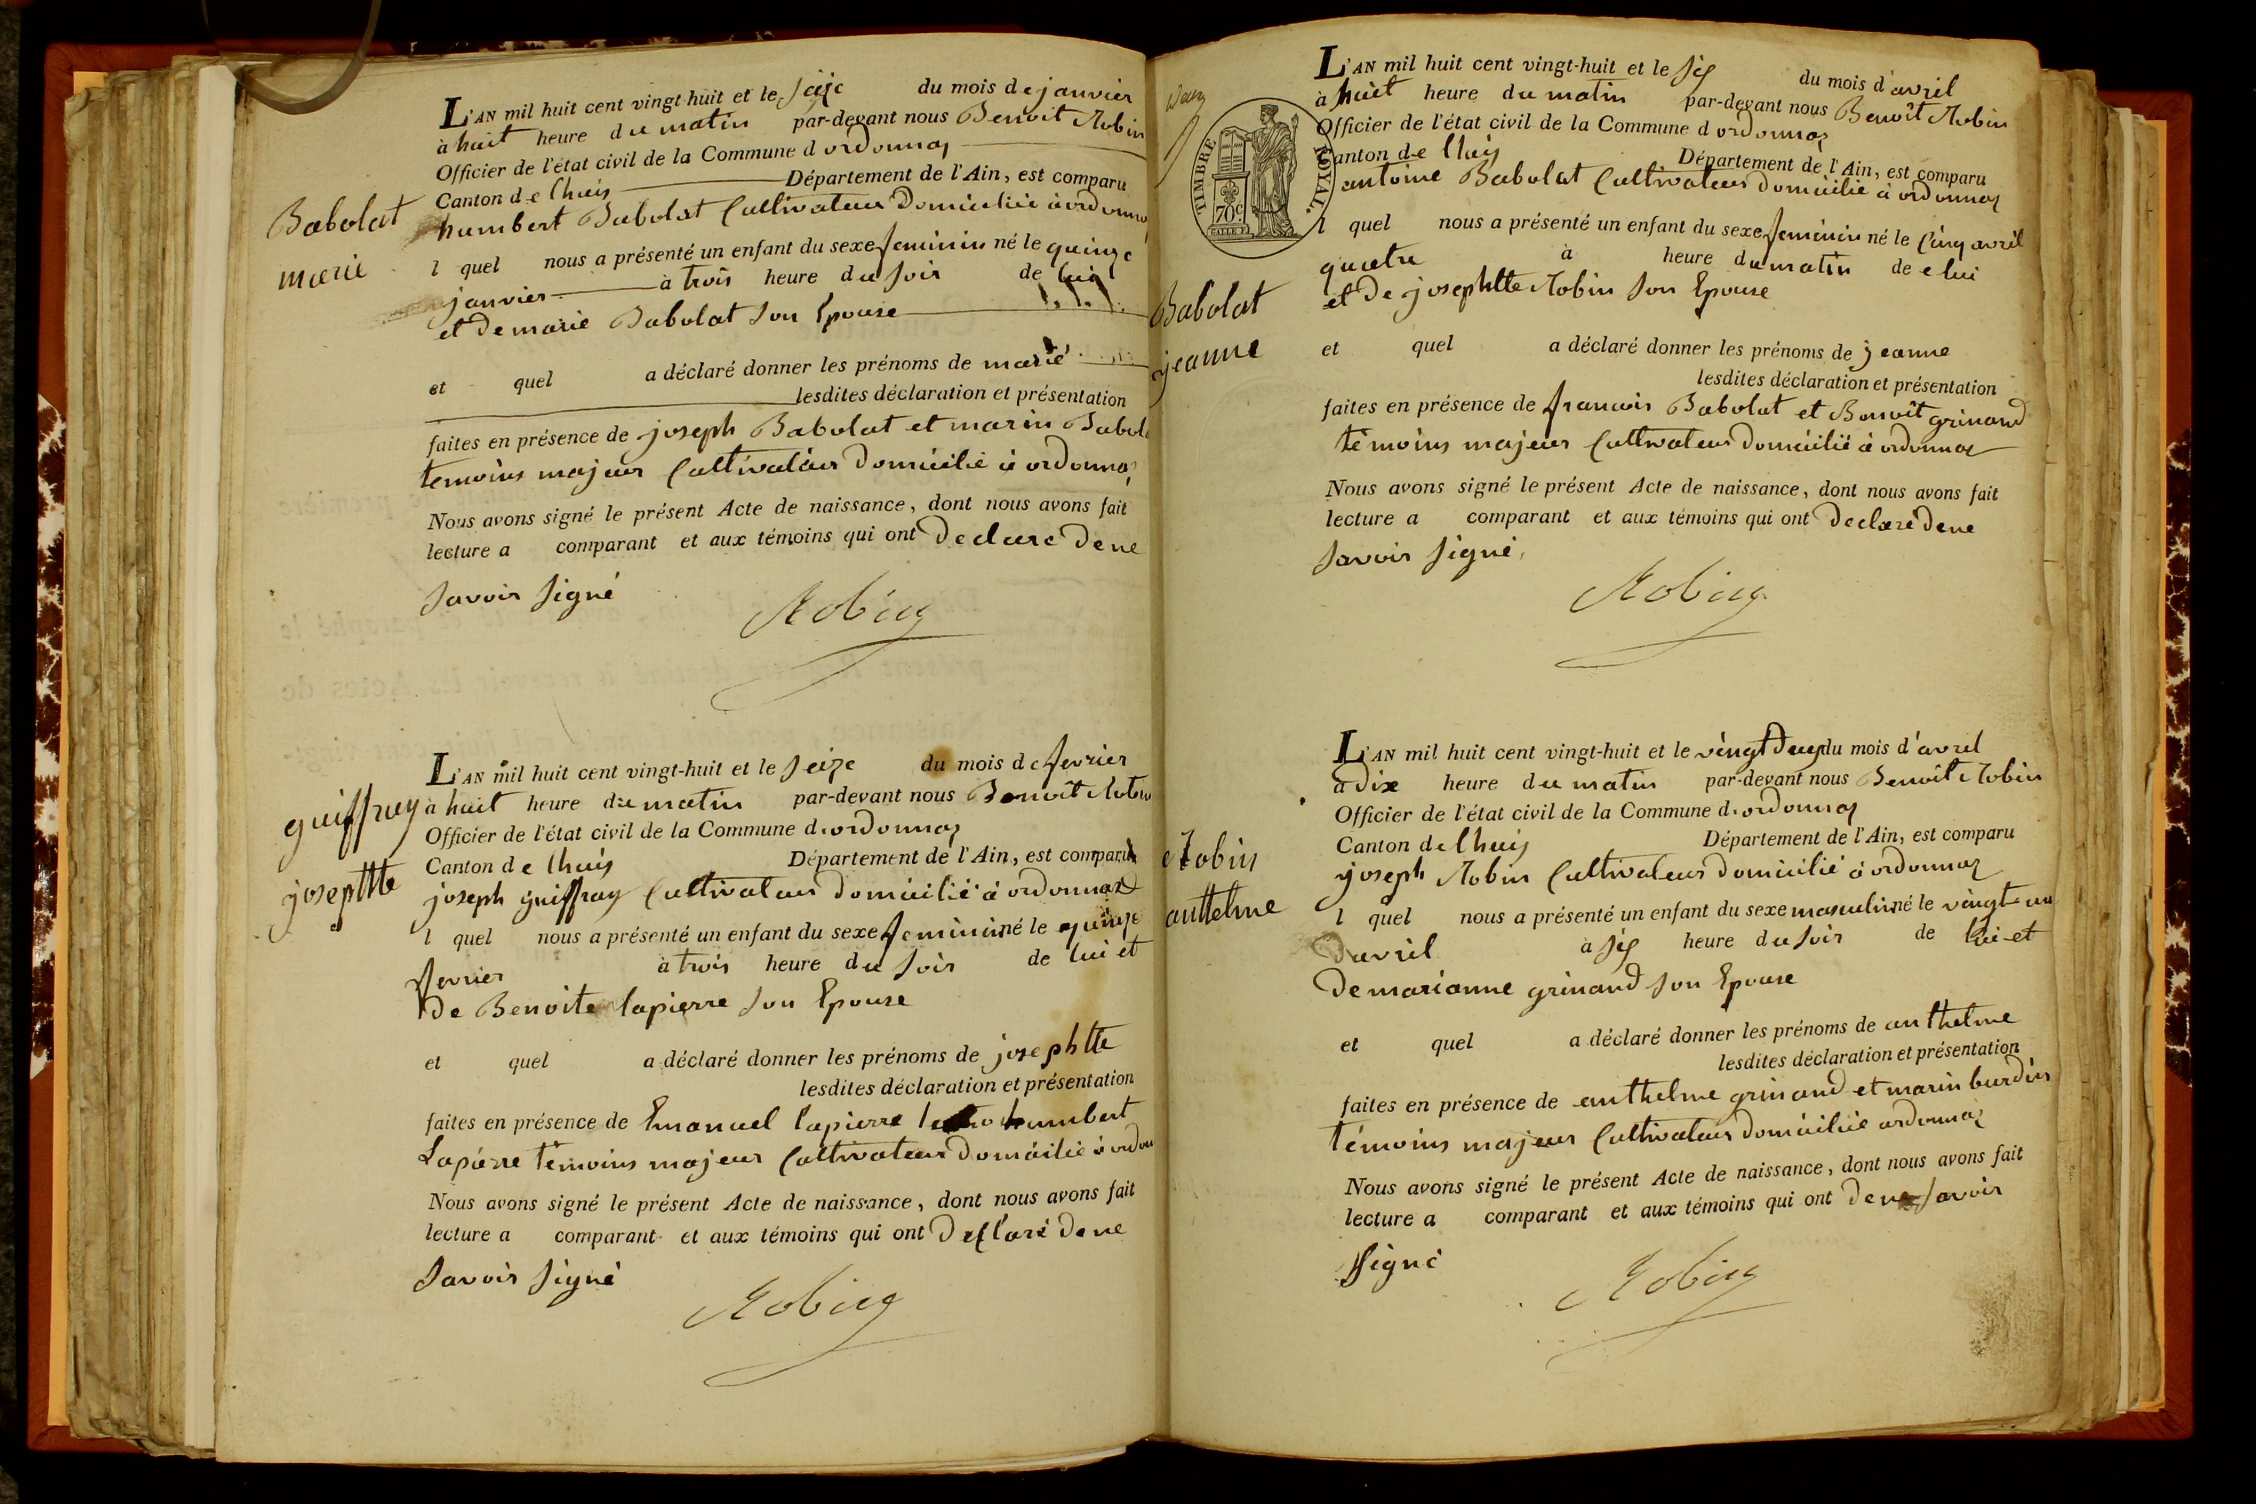 L'AN mil huit cent vingt-huit et le seize du mois de janvier
à huit heure du matin par-devant nous Benoit Robin
Officier de l'état civil de la Commune d ordonnaz
Canton de lhuis Département de l'Ain, est comparu
humbert Babolat Cultivateur Domicilié à ordonna
l quel nous a présenté un enfant du sexe feminin né le quinze
janvier à trois heure du soir de lui
et de marie Babolat son Epouse
et quel a déclaré donner les prénoms de marie
lesdites déclaration et présentation
faites en présence de joseph Babolat et marin Babol
temoins majeur Cultivateur Domicilié à ordonnaz
Nous avons signé le présent Acte de naissance, dont nous avons fait
lecture a comparant et aux témoins qui ont declare de ne
savoir signé
Robin
Babolat
marie
L'AN mil huit cent vingt-huit et le seize du mois de fevrier
à huit heure du matin par-devant nous Benoit Robin
Officier de l'état civil de la Commune d ordonnaz
Canton de lhuis Département de l'Ain, est comparu
joseph guiffray Cultivateur domicilié à ordonnaz
l quel nous a présenté un enfant du sexe feminin né le quinze
fevrier à trois heure du soir de lui et
De Benoite lapierre son Epouse
et quel a déclaré donner les prénoms de josephtte
lesdites déclaration et présentation
faites en présence de Emanuel lapierre humbert
Lapierre témoins majeur Cultivateur Domicilié à ordon
Nous avons signé le présent Acte de naissance, dont nous avons fait
lecture a comparant et aux témoins qui ont Declaré de ne
savoir signé
Robin
guiffray
josephtte
L'AN mil huit cent vingt-huit et le six du mois d'avril
à huit heure du matin par-devant nous Benoît Robin
Officier de l'état civil de la Commune d ordonnaz
Canton de lhuis Département de l'Ain, est comparu
antoine Babolat Cultivateur domicilié à ordonnaz
l quel nous a présenté un enfant du sexe feminin né le cinq avril
quatre à heure du matin de e lui
et De josephtte Robin son Epouse
et quel a déclaré donner les prénoms de jeanne
lesdites déclaration et présentation
faites en présence de francois Babolat et Benoît grinand
témoins majeur Cultivateur domicilié à ordonnaz
Nous avons signé le présent Acte de naissance, dont nous avons fait
lecture a comparant et aux témoins qui ont declaré de ne
savoir signé
Robin
TIMBRE ROYAL.
70c
Babolat
jeanne
L'AN mil huit cent vingt-huit et le vingt deux du mois d'avril
à Dix heure du matin par-devant nous Benoît Robin
Officier de l'état civil de la Commune d ordonnaz
Canton de lhuis Département de l'Ain, est comparu
joseph Robin Cultivateur domicilié à ordonnaz
l quel nous a présenté un enfant du sexe masculin né le vingt un
Davril à six heure du soir de lui et
De marianne grinand son Epouse
et quel a déclaré donner les prénoms de anthelme
lesdites déclaration et présentation
faites en présence de anthelme grinand et marin burdin
témoins majeur Cultivateur domicilié ordonnaz
Nous avons signé le présent Acte de naissance, dont nous avons fait
lecture a comparant et aux témoins qui ont de ne savoir
signé
Robin
Robin
anthelme